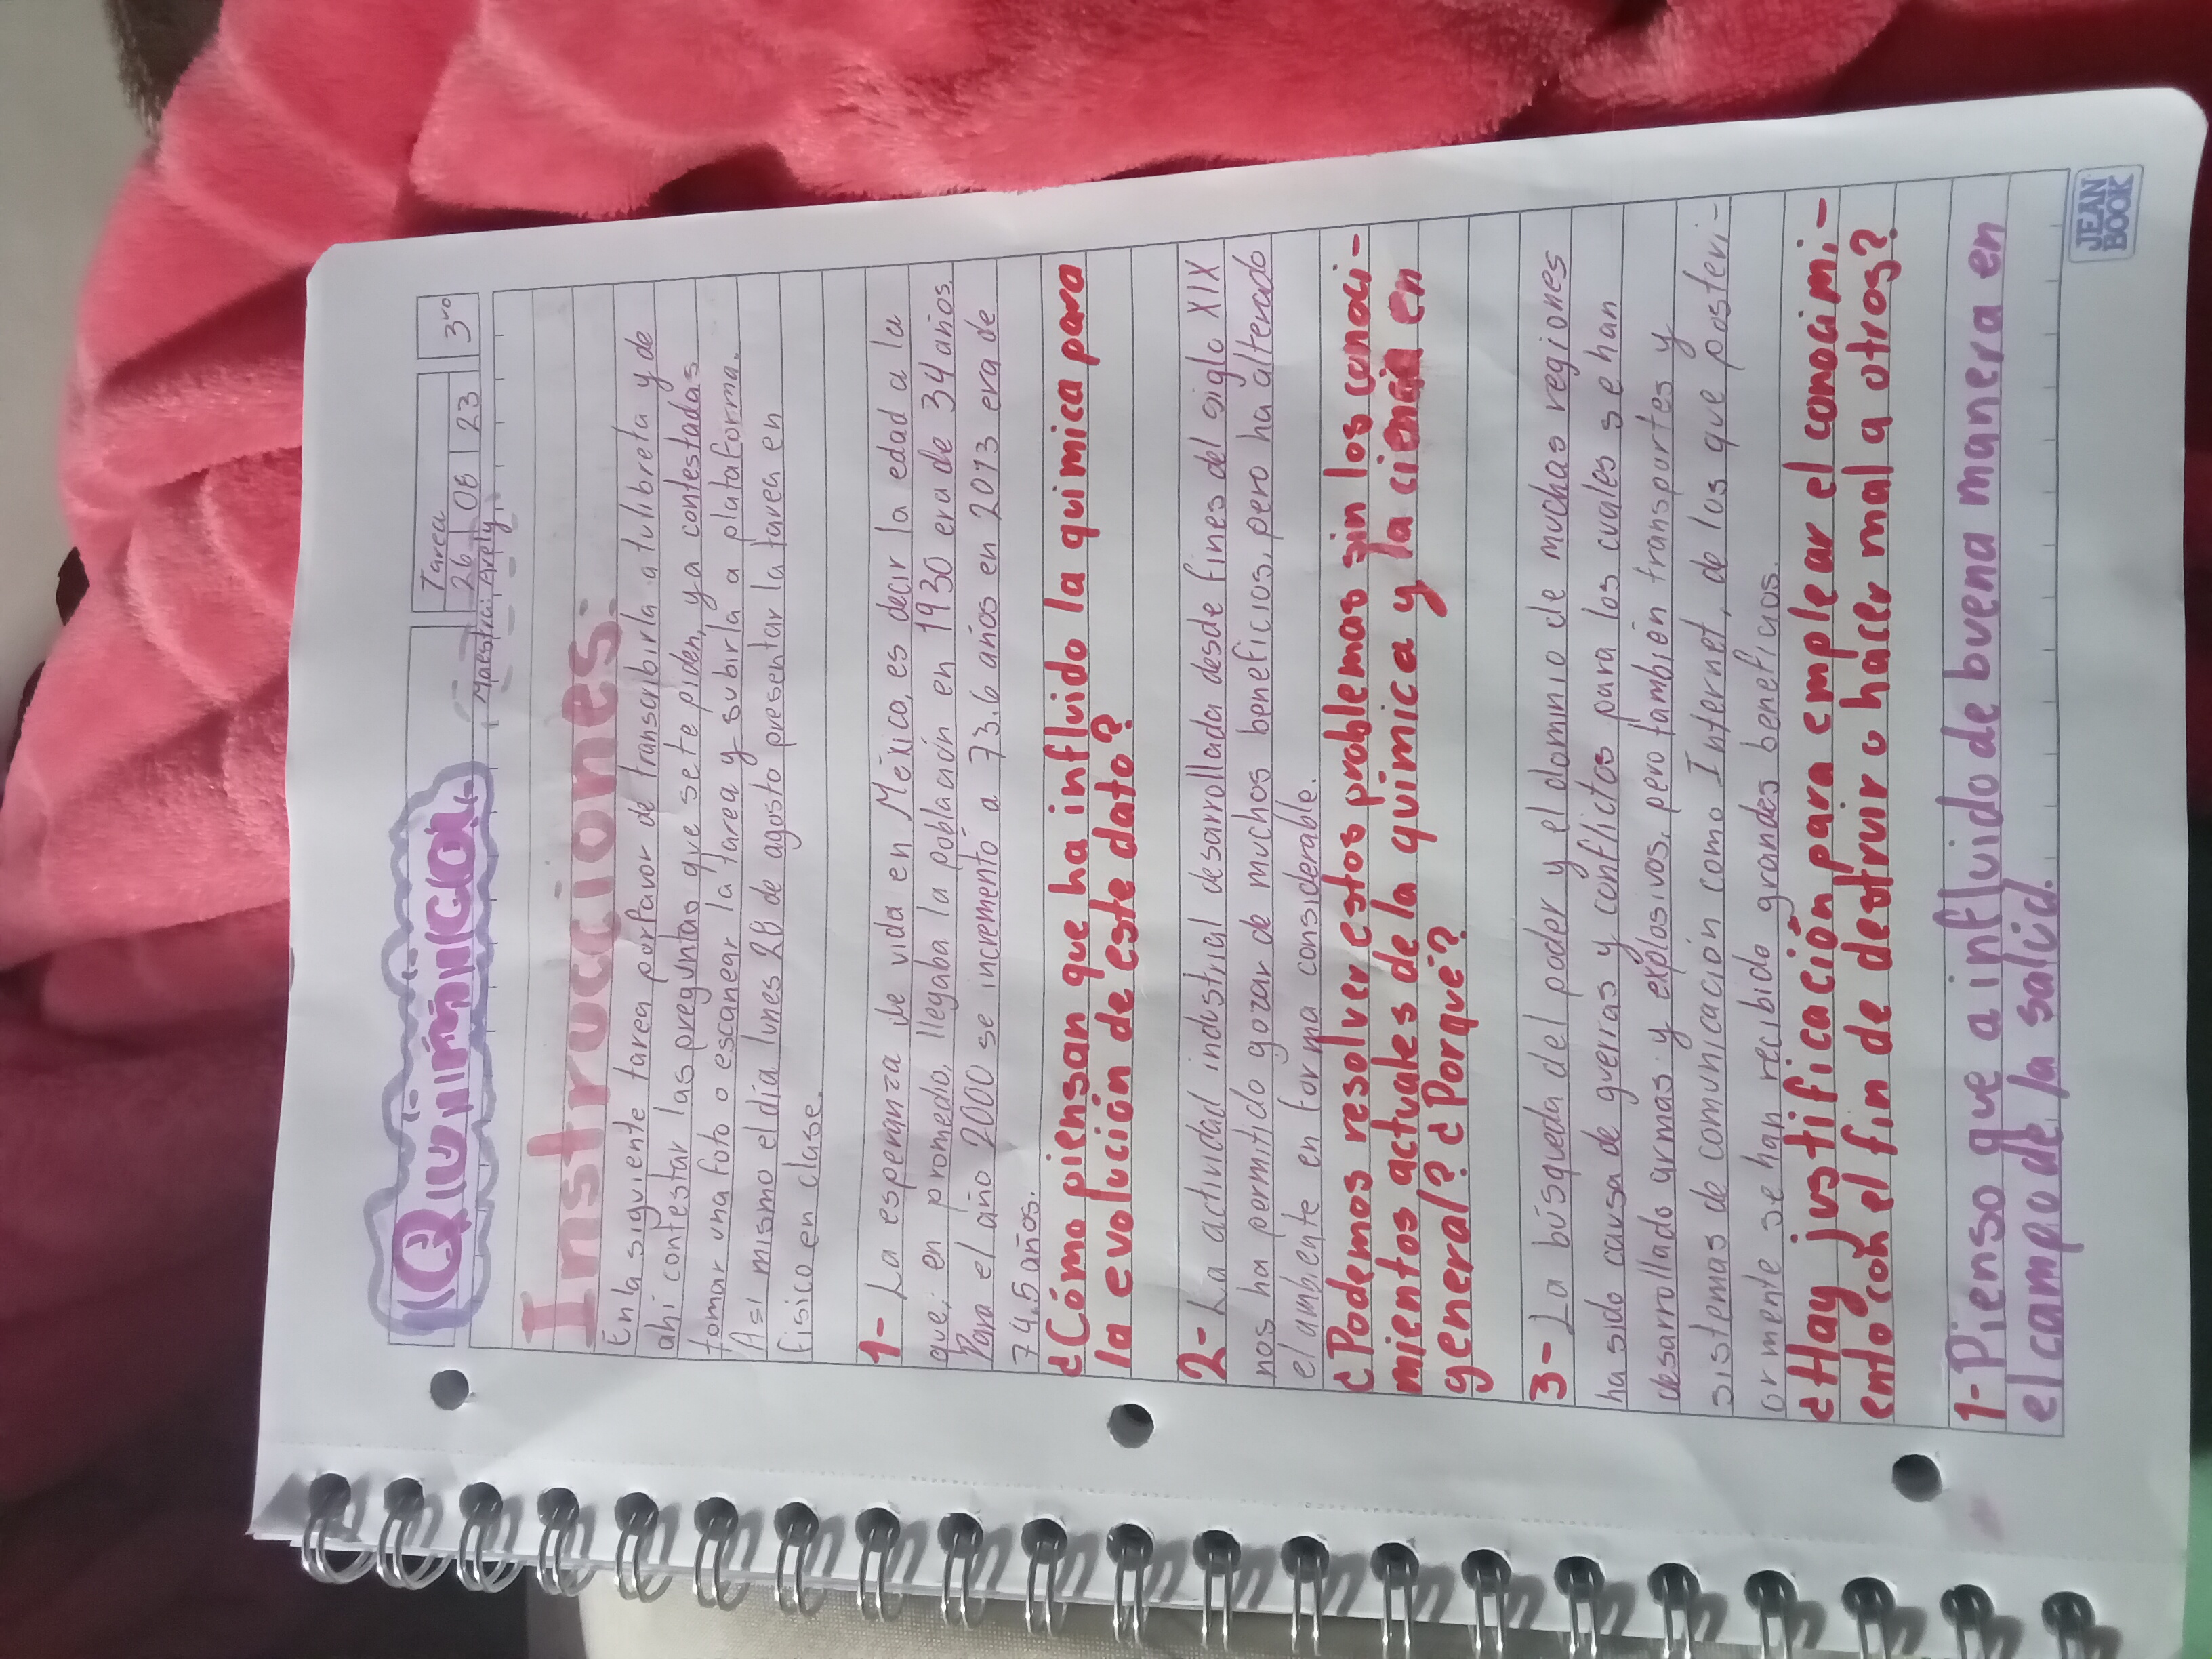 Química
Tarea
26 08 23
3ro
Maestra: Arely.
Instrucciones:
En la siguiente tarea porfavor de transcribirla a tu libreta y de
ahí contestar las preguntas que se te piden, ya contestadas
tomar una foto o escanear la tarea y subirla a plataforma.
Asi mismo el día lunes 28 de agosto presentar la tarea en
fisico en clase.
1- La esperanza de vida en México, es decir la edad a la
que; en promedio, llegaba la población en 1930 era de 34 años.
Para el año 2000 se incrementó a 73.6 años en 2013 era de
74.5 años.
¿Cómo piensan que ha influido la quimica para
la evolución de este dato?
2- La actividad industrial desarrollada desde fines del siglo XIX
nos ha permitido gozar de muchos beneficios, pero ha alterado
el ambiente en forma considerable.
¿Podemos resolver estos problemas sin los conoci-
mientos actuales de la quimica y la ciencia en
general? ¿Porqué?
3- La búsqueda del poder y el dominio de muchas regiones
ha sido causa de guerras y conflictos para los cuales se han
desarrollado armas y explosivos, pero también transportes y
sistemas de comunicación como Internet, de los que posteri-
ormente se han recibido grandes beneficios.
¿Hay justificación para emplear el conocimi-
ento con el fin de destruir o hacer mal a otros?
1- Pienso que a influido de buena manera en
el campo de la salud.
JEAN
BOOK